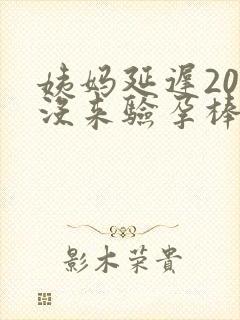 姨妈延遲20
没来驗孕棒
影木荣貴